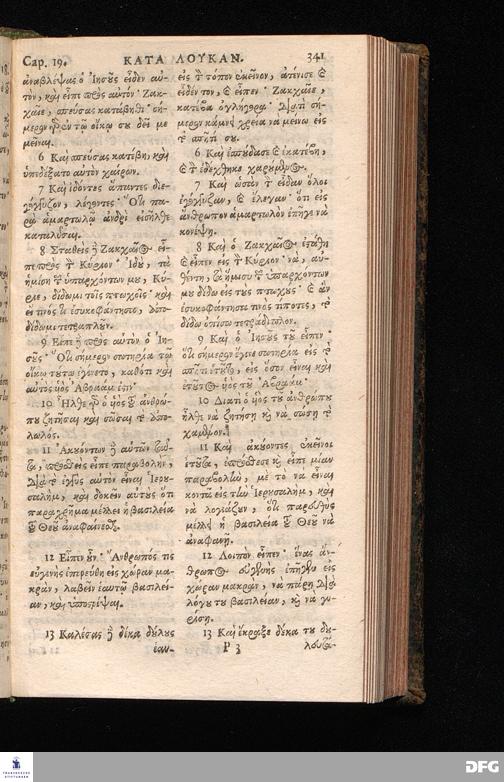 Cap. 19. ΚΑΤΑ ΛΟΥΚΑΝ. 341
ἀναβλέψας ὁ Ἰησοῦς εἶδεν αὐ-
τὸν, καὶ εἶπε πρὸς αὐτόν· Ζακ-
χαῖε, σπεύσας κατάβηθι· σή-
μερον γὰρ ἐν τῷ οἴκῳ σου δεῖ με
μεῖναι.
6 Καὶ σπεύσας κατέβη, καὶ
ὑπεδέξατο αὐτὸν χαίρων.
7 Καὶ ἰδόντες ἅπαντες διε-
γόγγυζον, λέγοντες· Ὅτι πα-
ρὰ ἁμαρτωλῷ ἀνδρὶ εἰσῆλθε
καταλῦσαι.
8 Σταθεὶς δὲ Ζακχαῖος εἶ-
πε πρὸς τὸν Κύριον· Ἰδοὺ, τὰ
ἡμίση τῶν ὑπαρχόντων μου, Κύ-
ριε, δίδωμι τοῖς πτωχοῖς· καὶ
εἴ τινός τι ἐσυκοφάντησα, ἀπο-
δίδωμι τετραπλοῦν.
9 Εἶπε δὲ πρὸς αὐτὸν ὁ Ἰη-
σοῦς· Ὅτι σήμερον σωτηρία τῷ
οἴκῳ τούτῳ ἐγένετο, καθότι καὶ
αὐτὸς υἱὸς Ἀβραάμ ἐστιν·
10 Ἦλθε γὰρ ὁ υἱὸς τοῦ ἀνθρώ-
που ζητῆσαι καὶ σῶσαι τὸ ἀπο-
λωλός.
11 Ἀκουόντων δὲ αὐτῶν ταῦ-
τα, προσθεὶς εἶπε παραβολὴν,
διὰ τὸ ἐγγὺς αὐτὸν εἶναι Ἱερου-
σαλὴμ, καὶ δοκεῖν αὐτοὺς ὅτι
παραχρῆμα μέλλει ἡ βασιλεία
τοῦ Θεοῦ ἀναφαίνεσθαι.
12 Εἶπεν οὖν· Ἄνθρωπός τις
εὐγενὴς ἐπορεύθη εἰς χώραν μα-
κρὰν, λαβεῖν ἑαυτῷ βασιλεί-
αν, καὶ ὑποστρέψαι.
13 Καλέσας δὲ δέκα δούλους
ἑαυ-
εἰς τὸν τόπον ἐκεῖνον, ἀτένισε καὶ
εἶδέν τον, καὶ εἶπεν· Ζακχαῖε,
κατέβα ὀγλήγορα· διατὶ σή-
μερον κάμνει χρεία νὰ μείνω εἰς
τὸ σπῆτί σου.
6 Καὶ ἐσπούδασε καὶ ἐκατέβη,
καὶ τὸν ἐδέχθηκε χαρούμενος.
7 Καὶ ὡσὰν τὸν εἶδαν ὅλοι
ἐγόγγυζαν, καὶ ἔλεγαν· ὅτι εἰς
ἄνθρωπον ἁμαρτωλὸν ἐπῆγε νὰ
κονέψῃ.
8 Καὶ ὁ Ζακχαῖος ἐστάθη
καὶ εἶπεν εἰς τὸν Κύριον· νὰ, αὐ-
θέντη, τὰ ἥμισυ τῶν ὑπαρχόντων
μου δίδω εἰς τοὺς πτωχούς· καὶ ἂν
ἐσυκοφάντησα τινὸς τίποτες, τὸ
δίδω ὀπίσω τετραδίπλον.
9 Καὶ ὁ Ἰησοῦς τοῦ εἶπεν·
ὅτι σήμερον ἔγινε σωτηρία εἰς τὸ
σπῆτι ἐτοῦτο, εἰς ὅσον εἶναι καὶ
ἐτοῦτος υἱὸς τοῦ Ἀβραάμ·
10 Διατὶ ὁ υἱὸς τοῦ ἀνθρώπου
ἦλθε νὰ ζητήσῃ καὶ νὰ σώσῃ τὸ
χαμένον.
11 Καὶ ἀκούοντες ἐκεῖνοι
ἐτοῦτα, ἐπρόσθεσε καὶ εἶπε μίαν
παραβολὴν, μὲ τὸ νὰ εἶναι
κοντὰ εἰς τὴν Ἱερουσαλὴμ, καὶ
νὰ λογιάζουν, ὅτι παρευθὺς
μέλλει ἡ βασιλεία τοῦ Θεοῦ νὰ
ἀναφανῇ.
12 Λοιπὸν εἶπεν· ἕνας ἄν-
θρωπος εὐγενὴς ἐπῆγεν εἰς
χώραν μακρὰν, νὰ πάρῃ διὰ
λόγου του βασιλείαν, καὶ νὰ γυ-
ρίσῃ.
13 Καὶ ἔκραξε δέκα του δού-
P 3 λους
FRANCKESCHE STIFTUNGEN
DFG